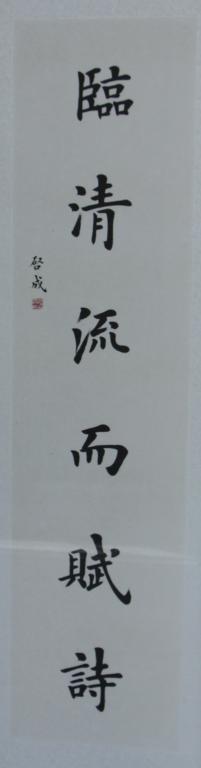 臨清流而賦詩
啓成